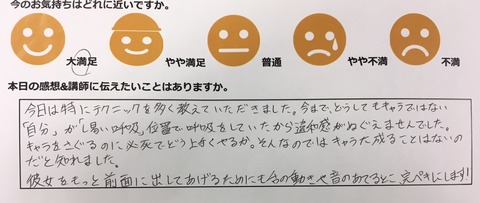 今のお気持ちはどれに近いですか。
大満足 やや満足 普通 やや不満 不満
本日の感想&講師に伝えたいことはありますか。
今日は特にテクニックを多く教えていただきました。今まで、どうしてもキャラではない
「自分」が「易い呼吸」位置で呼吸をしていたから違和感がぬぐえませんでした。
キャラをさぐるのに必死でどう上手くやるか。そんなのではキャラに成ることはないの
だと知れました。
彼女をもっと前面に出してあげるためにも舌の動きや音のあてるとこ、完ペキにします!